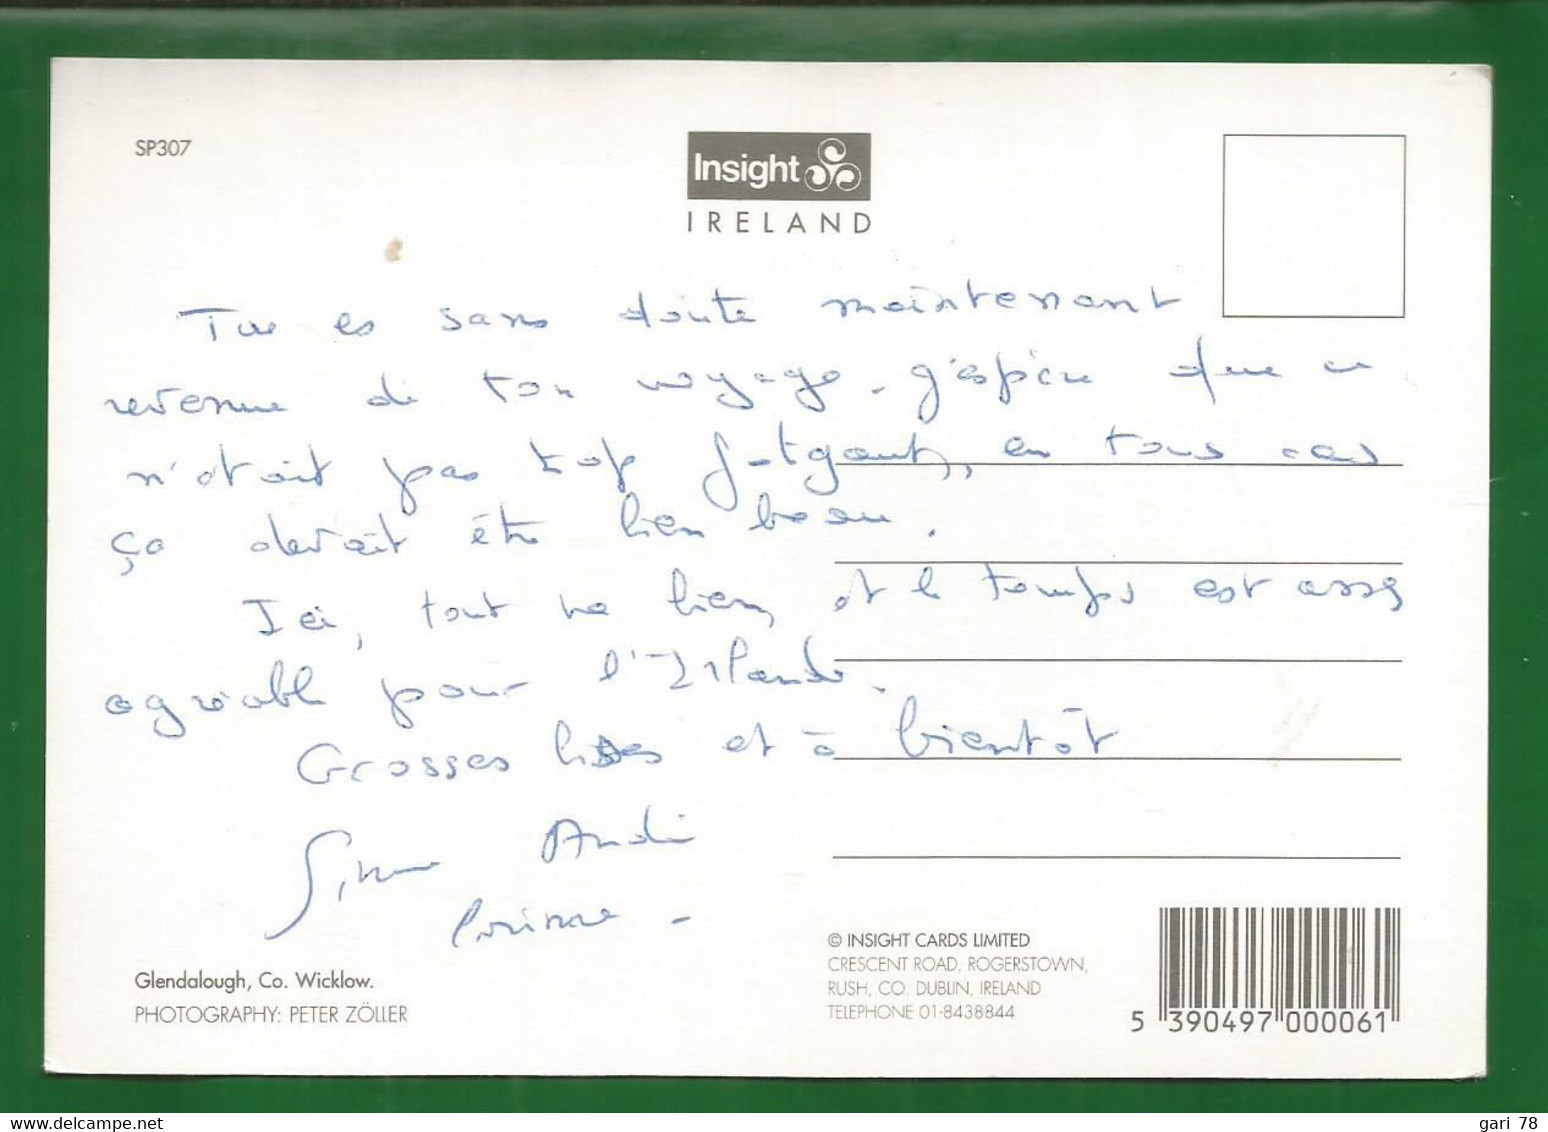 SP307
Insight
IRELAND
Tu es sans doute maintenant
revenue de ton voyage. J'espère que ce
n'était pas trop fatigant, en tous cas
ça devait être bien beau.
Ici, tout va bien et le temps est assez
agréable pour l'Irlande.
Grosses bises et à bientôt
André
Corinne -
Glendalough, Co. Wicklow.
PHOTOGRAPHY: PETER ZÖLLER
© INSIGHT CARDS LIMITED
CRESCENT ROAD, ROGERSTOWN,
RUSH, CO. DUBLIN, IRELAND
TELEPHONE 01-8438844
5 390497 000061
delcampe.net
gari 78